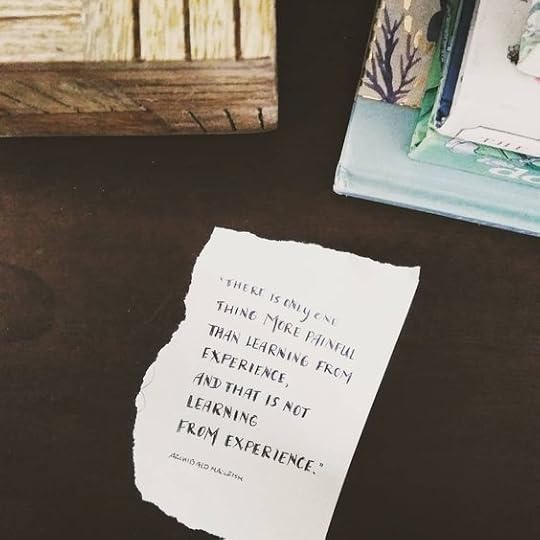 "THERE IS ONLY ONE
THING MORE PAINFUL
THAN LEARNING FROM
EXPERIENCE,
AND THAT IS NOT
LEARNING
FROM EXPERIENCE."
ARCHIBALD